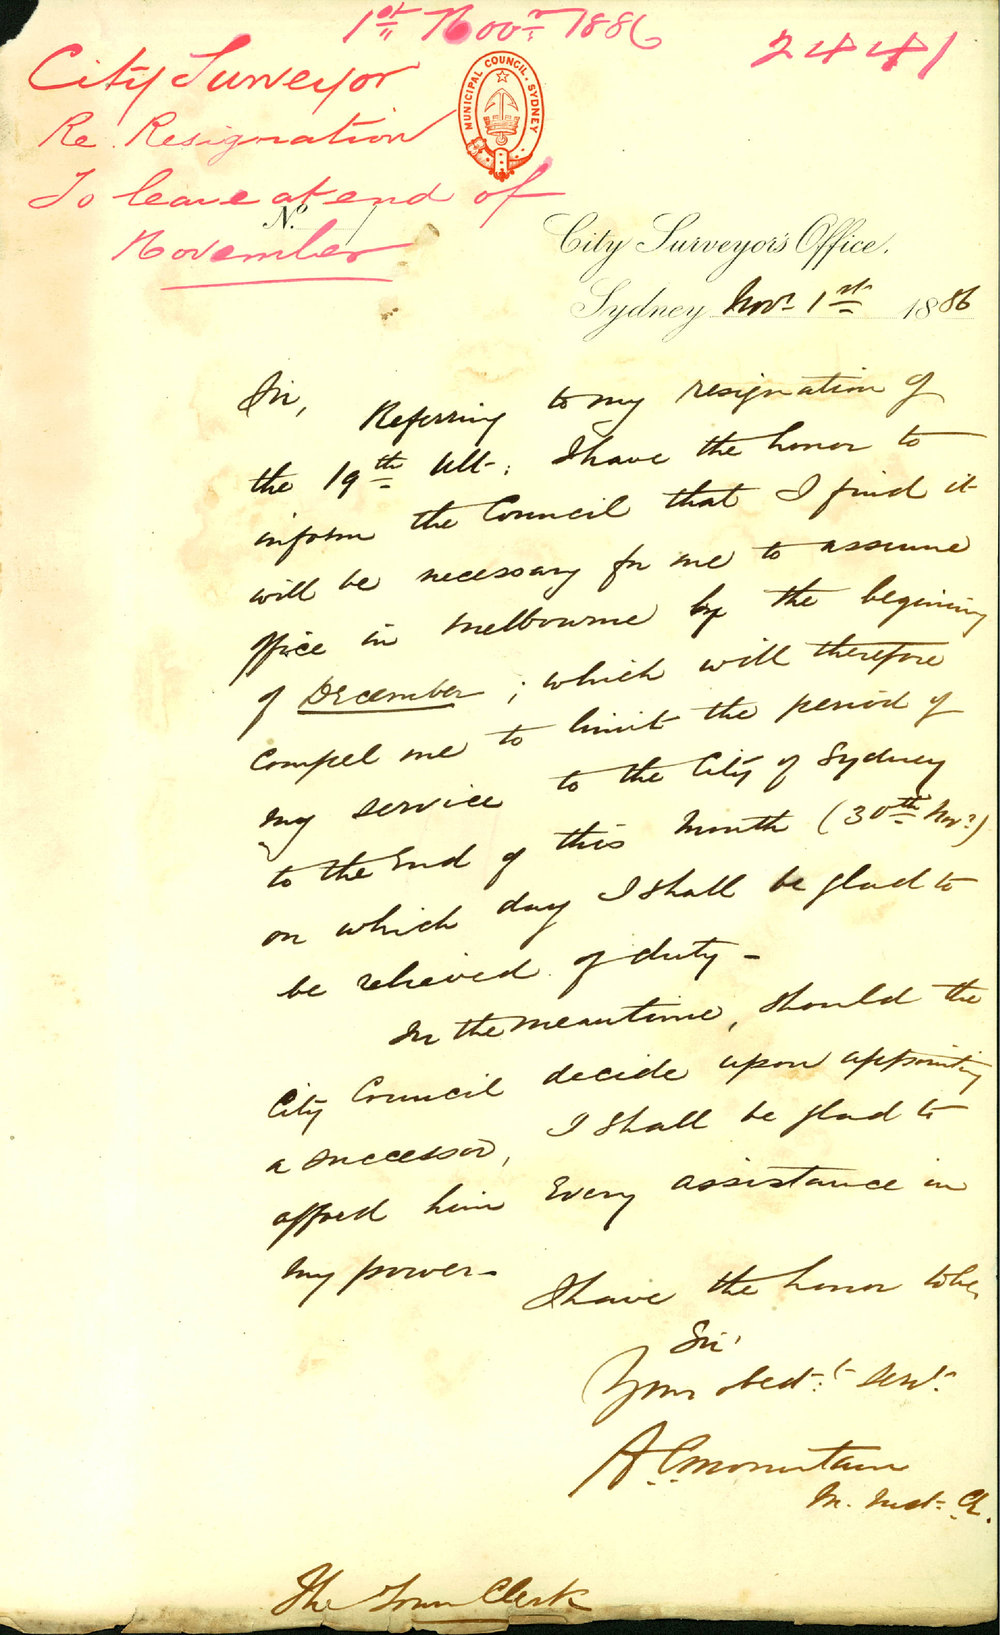 1st Novr 1886
2441
City Surveyor
Re Resignation
To leave at end of
November
MUNICIPAL COUNCIL. SYDNEY
No
City Surveyor's Office.
Sydney Novr 1st 1886
Sir,
Referring to my resignation of
the 19th Ult: I have the honor to
inform the Council that I find it
will be necessary for me to assume
office in Melbourne by the begining
of December; which will therefore
compel me to limit the period of
my service to the City of Sydney
to the End of this Month (30th Novr)
on which day I shall be glad to
be relieved of duty -
In the meantime, should the
City Council decide upon appointing
a successor, I shall be glad to
afford him Every assistance in
my power -
I have the honor to be,
Sir,
Your obedt. Servt.
A.C. Mountain
M. Inst. CE.
The Town Clerk